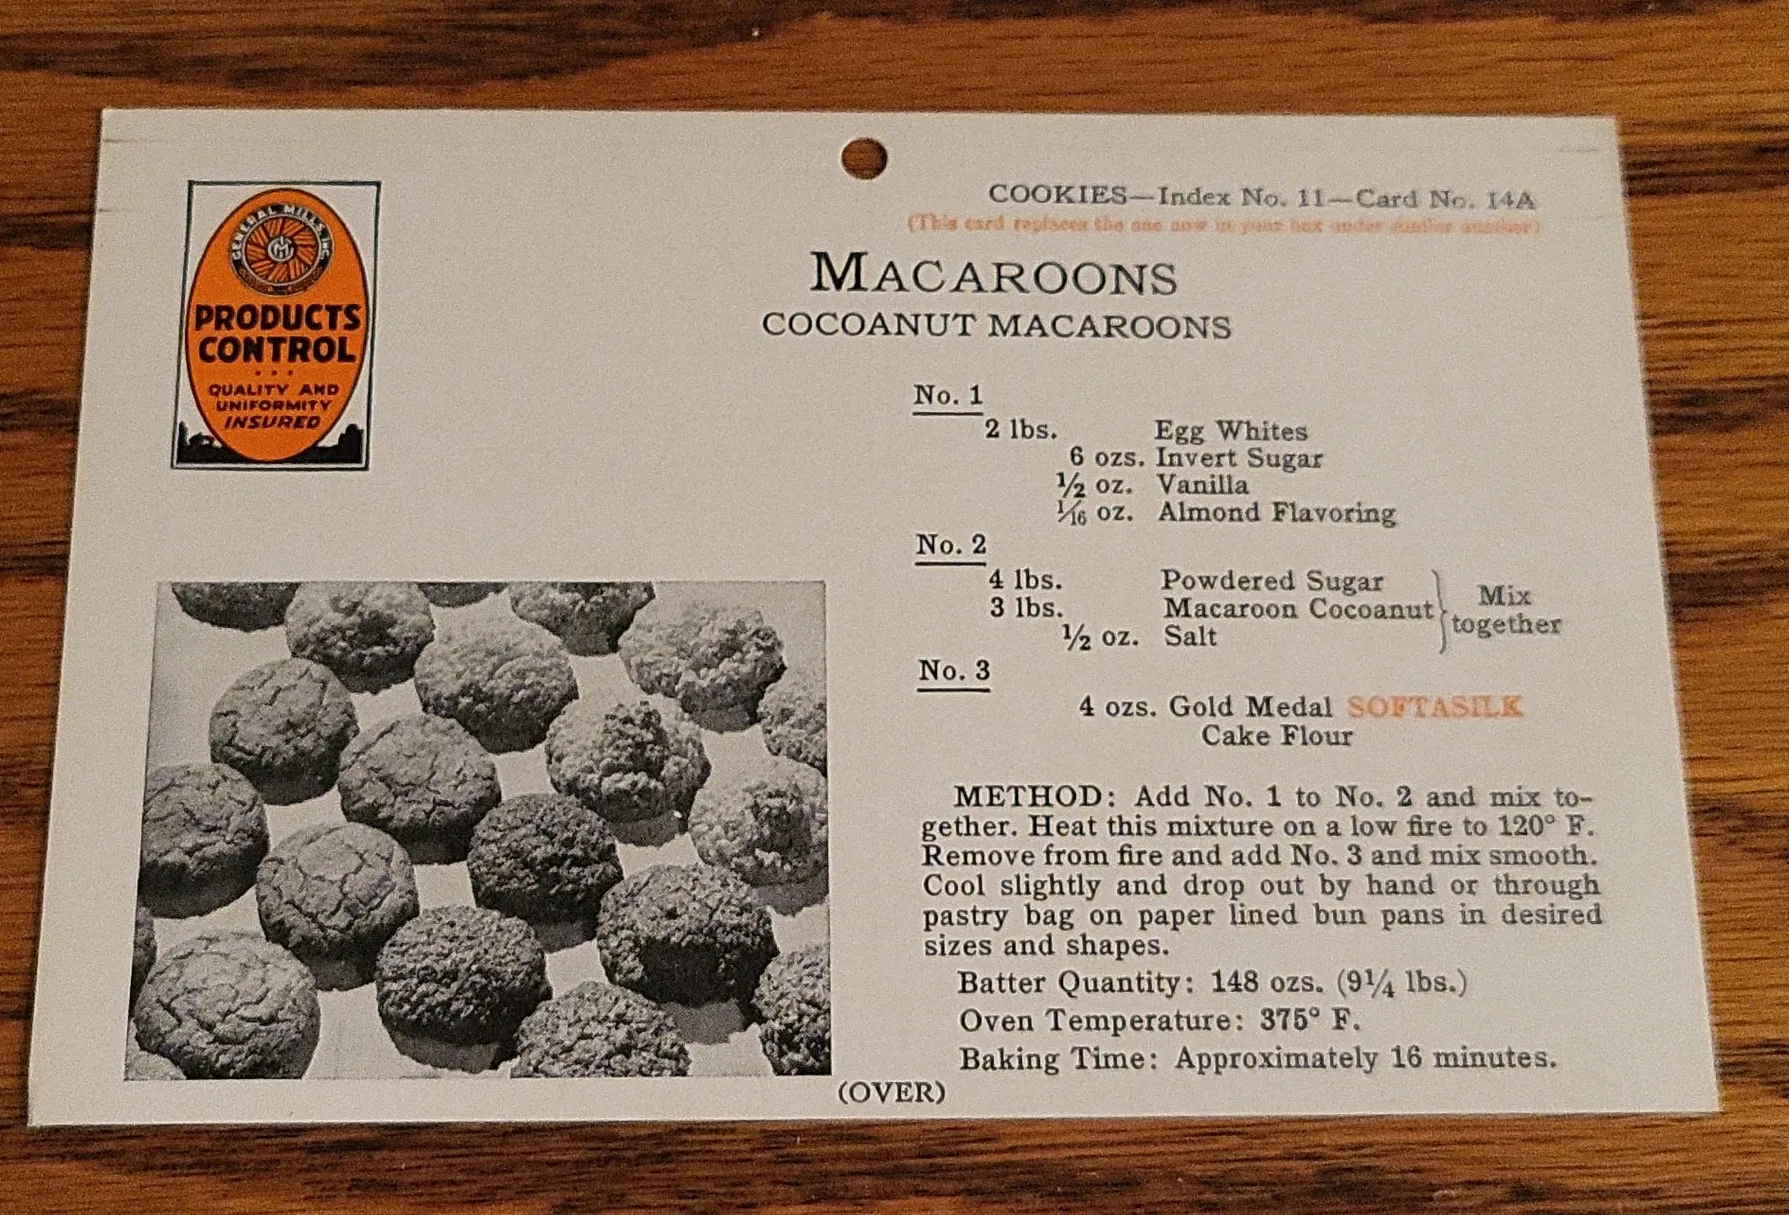 GENERAL MILLS, INC.
GM
PRODUCTS
CONTROL
QUALITY AND
UNIFORMITY
INSURED
COOKIES—Index No. 11—Card No. 14A
(This card replaces the one now in your box under similar number)
MACAROONS
COCOANUT MACAROONS
No. 1
2 lbs. Egg Whites
6 ozs. Invert Sugar
½ oz. Vanilla
1/16 oz. Almond Flavoring
No. 2
4 lbs. Powdered Sugar
3 lbs. Macaroon Cocoanut
½ oz. Salt
Mix
together
No. 3
4 ozs. Gold Medal SOFTASILK
Cake Flour
METHOD: Add No. 1 to No. 2 and mix to-
gether. Heat this mixture on a low fire to 120° F.
Remove from fire and add No. 3 and mix smooth.
Cool slightly and drop out by hand or through
pastry bag on paper lined bun pans in desired
sizes and shapes.
Batter Quantity: 148 ozs. (9¼ lbs.)
Oven Temperature: 375° F.
Baking Time: Approximately 16 minutes.
(OVER)